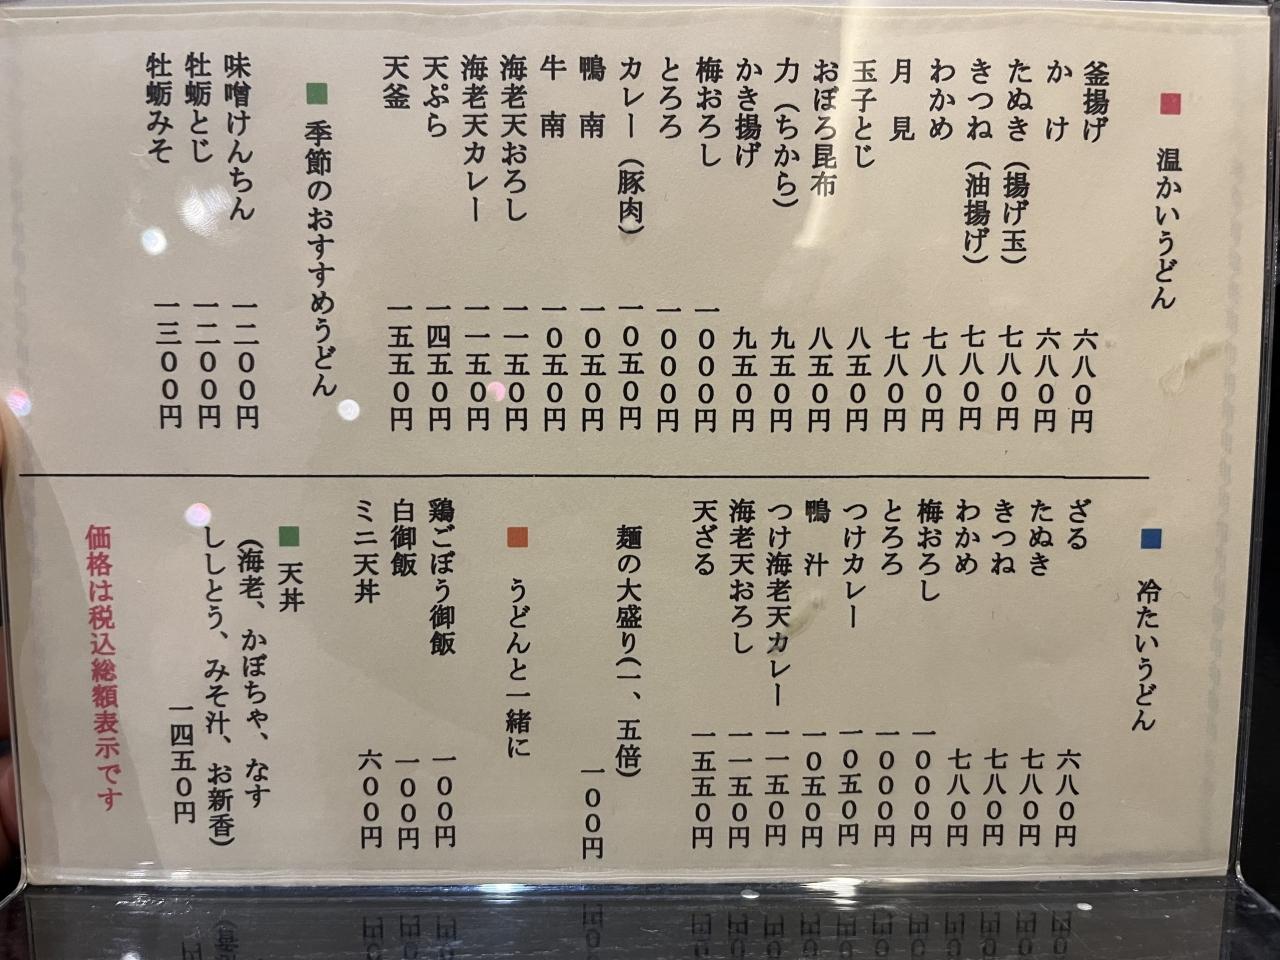 ■ 温かいうどん
釜揚げ 六八〇円
かけ 六八〇円
たぬき(揚げ玉) 七八〇円
きつね(油揚げ) 七八〇円
わかめ 七八〇円
月見 七八〇円
玉子とじ 八五〇円
おぼろ昆布 八五〇円
力(ちから) 九五〇円
かき揚げ 九五〇円
梅おろし 一〇〇〇円
とろろ 一〇〇〇円
カレー(豚肉) 一〇五〇円
鴨南 一〇五〇円
牛南 一〇五〇円
海老天おろし 一一五〇円
海老天カレー 一一五〇円
天ぷら 一四五〇円
天釜 一五五〇円
■ 季節のおすすめうどん
味噌けんちん 一二〇〇円
牡蛎とじ 一二〇〇円
牡蛎みそ 一三〇〇円
■ 冷たいうどん
ざる 六八〇円
たぬき 七八〇円
きつね 七八〇円
わかめ 七八〇円
梅おろし 一〇〇〇円
とろろ 一〇〇〇円
つけカレー 一〇五〇円
鴨汁 一〇五〇円
つけ海老天カレー 一一五〇円
海老天おろし 一一五〇円
天ざる 一五五〇円
麺の大盛り(一、五倍)
一〇〇円
■ うどんと一緒に
鶏ごぼう御飯 一〇〇円
白御飯 一〇〇円
ミニ天丼 六〇〇円
■ 天丼
(海老、かぼちゃ、なす
ししとう、みそ汁、お新香)
一四五〇円
価格は税込総額表示です